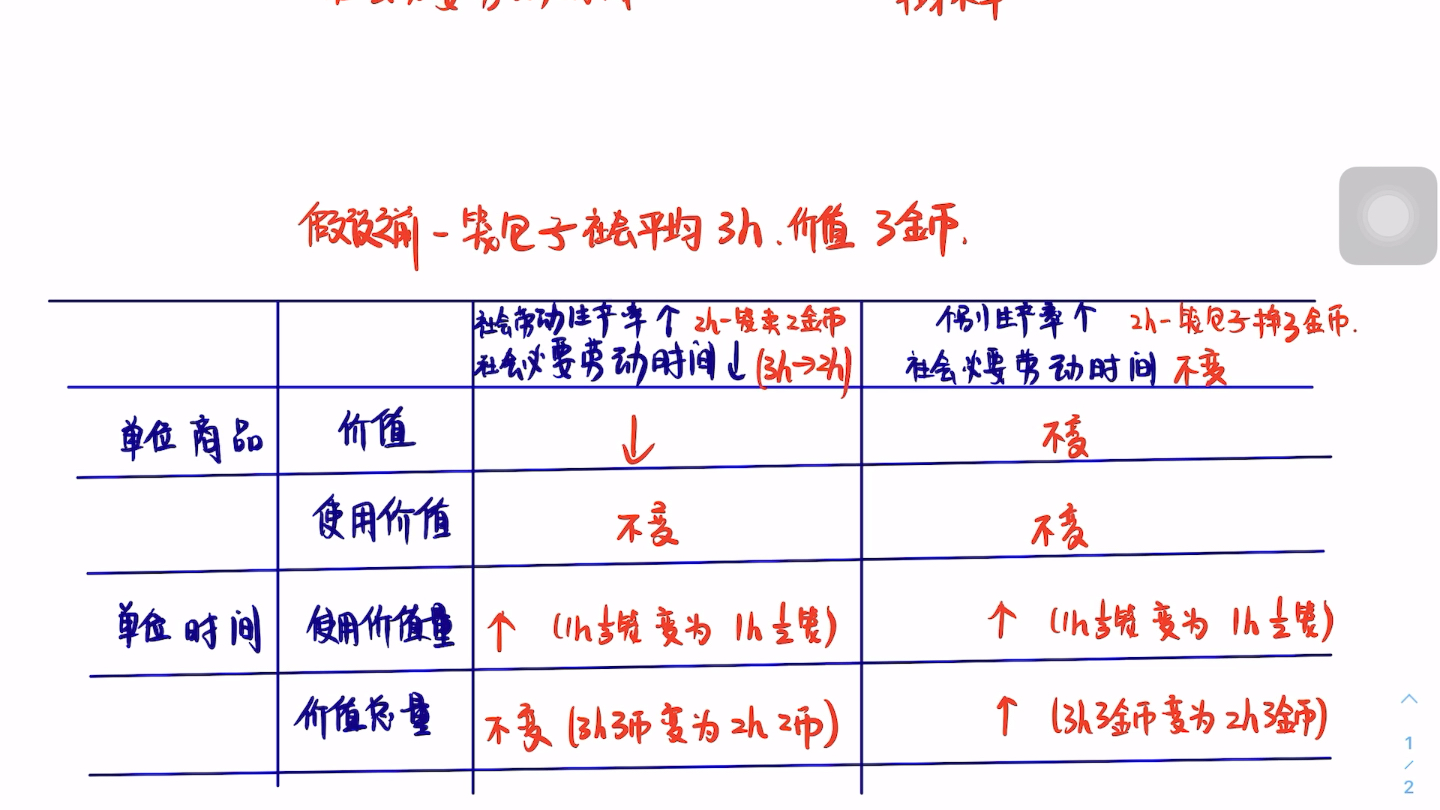 假设之前一笼包子社会平均3h.价值 3金币.
社会劳动生产率↑ 2h一笼卖2金币
社会必要劳动时间↓(3h→2h)
个别生产率个 2h一笼包子挣3金币.
社会必要劳动时间 不变
单位商品 价值 ↓ 不变
使用价值 不变 不变
单位时间 使用价值量 ↑ (1h⅓笼变为 1h ½笼) ↑ (1h⅓笼变为 1h ½笼)
价值总量 不变 (3h3币变为2h 2币) ↑ (3h3金币变为2h3金币)
1
/
2